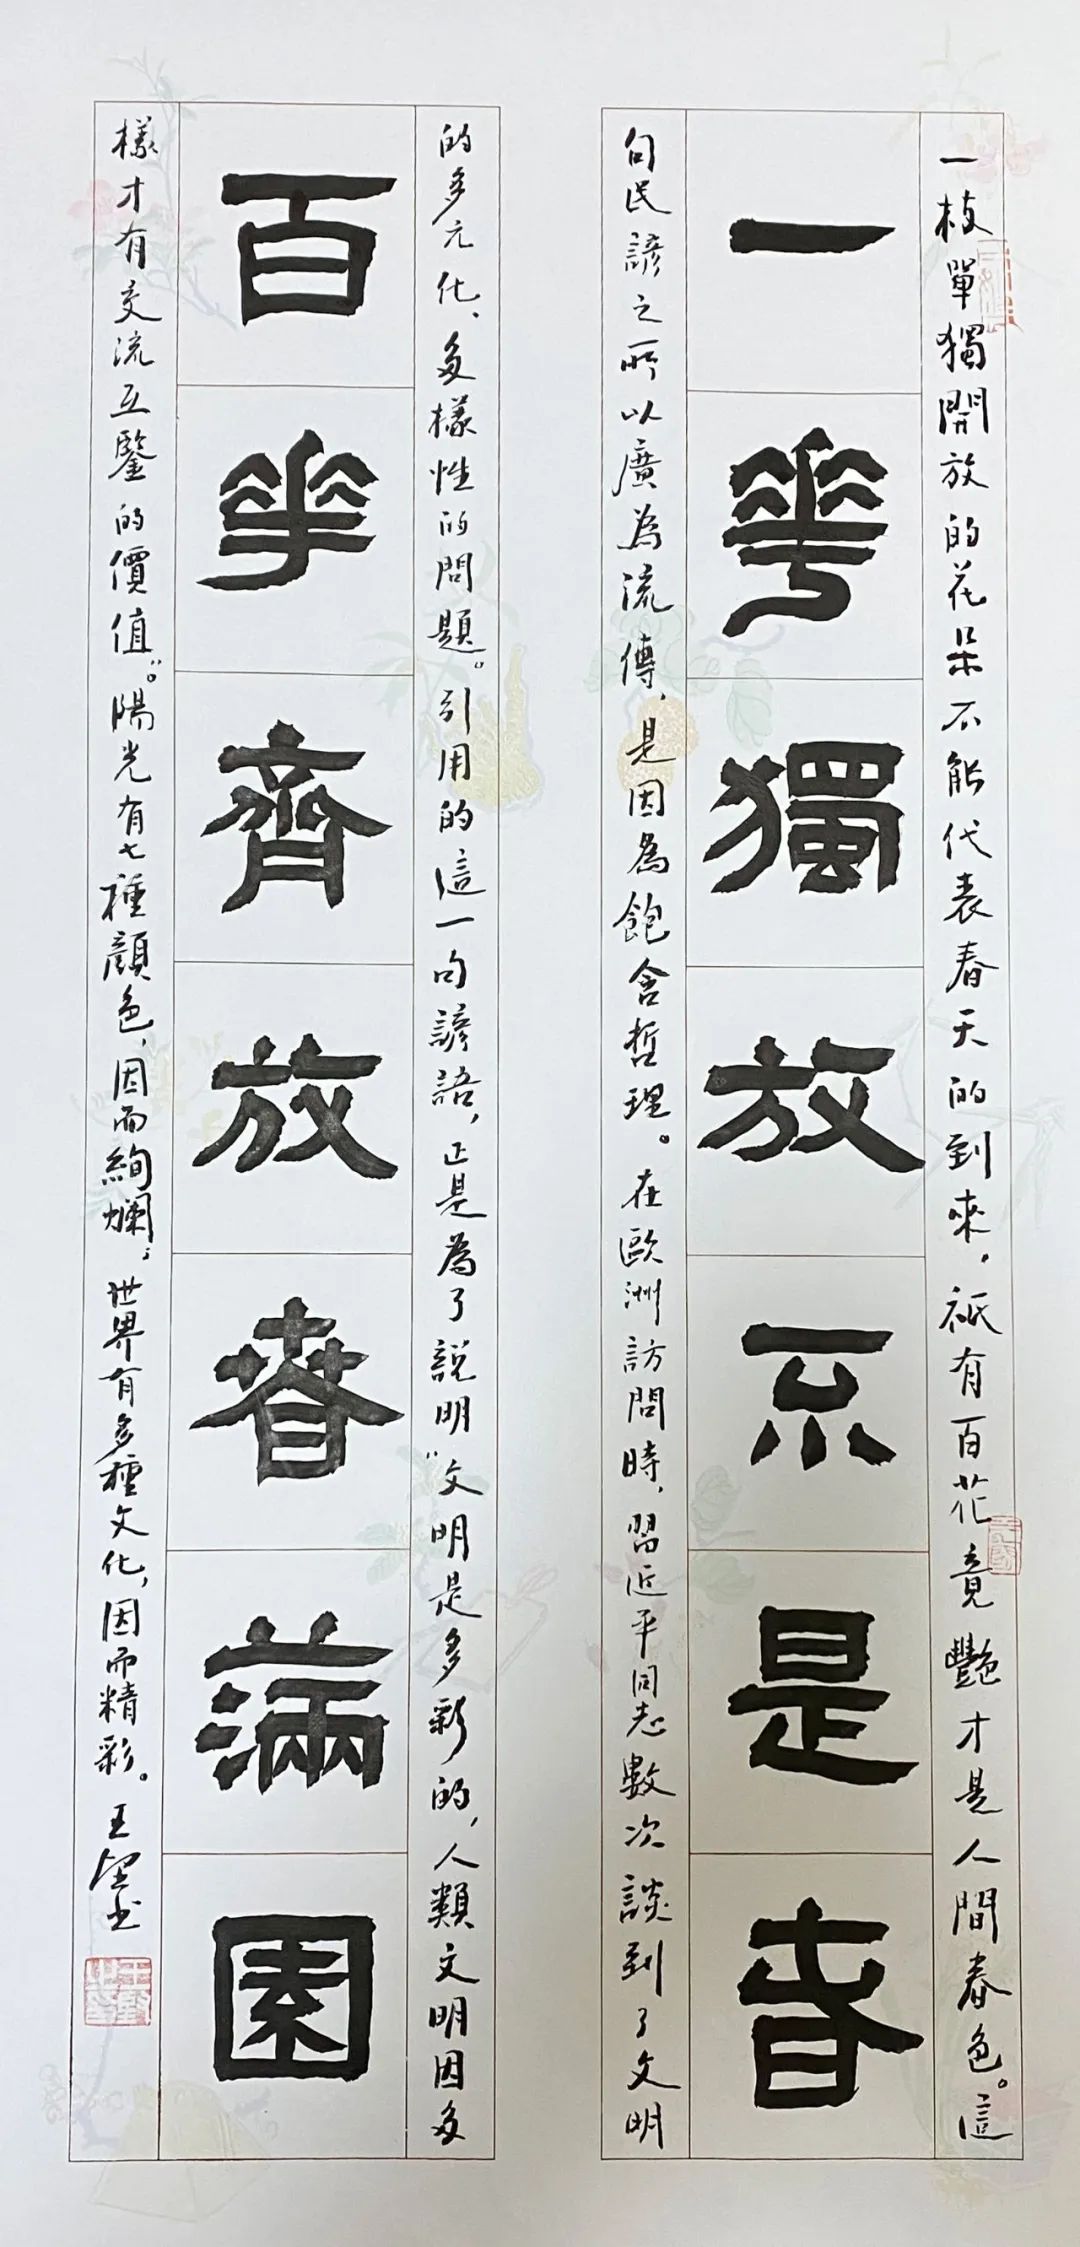 一枝單獨開放的花朵不能代表春天的到來，祇有百花竟豔才是人間春色。這
一華獨放不是春
句民諺之所以廣為流傳，是因為飽含哲理。在歐洲訪問時，習近平同志數次談到了文明
的多元化、多樣性的問題。引用的這一句諺語，正是為了説明“文明是多彩的，人類文明因多
百華齊放春滿園
樣才有交流互鑒的價值”。陽光有七種顏色，因而絢爛；世界有多種文化，因而精彩。王堅书